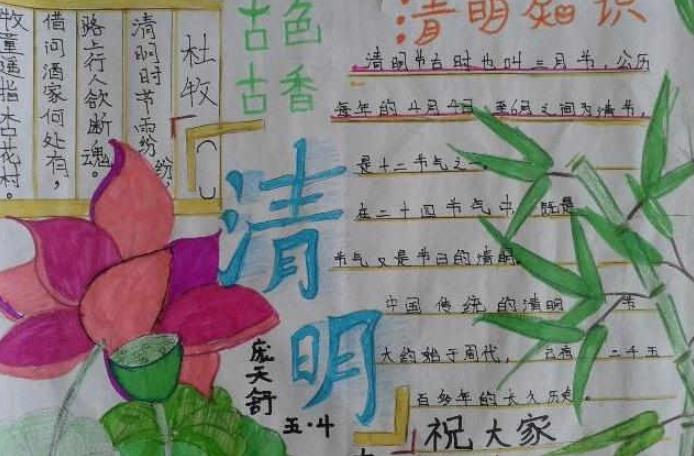 杜牧
清明时节雨纷纷,
路上行人欲断魂。
借问酒家何处有,
牧童遥指杏花村。
古色
古香
清明
庞天舒
五·4
清明知识
清明节古时也叫三月节,公历
每年的4月4日至6日之间为清节,
是十二节气之一。
在二十四节气中,既是
节气又是节日的清明。
中国传统的清明节
大约始于周代,已有二千五
百多年的长久历史。
祝大家